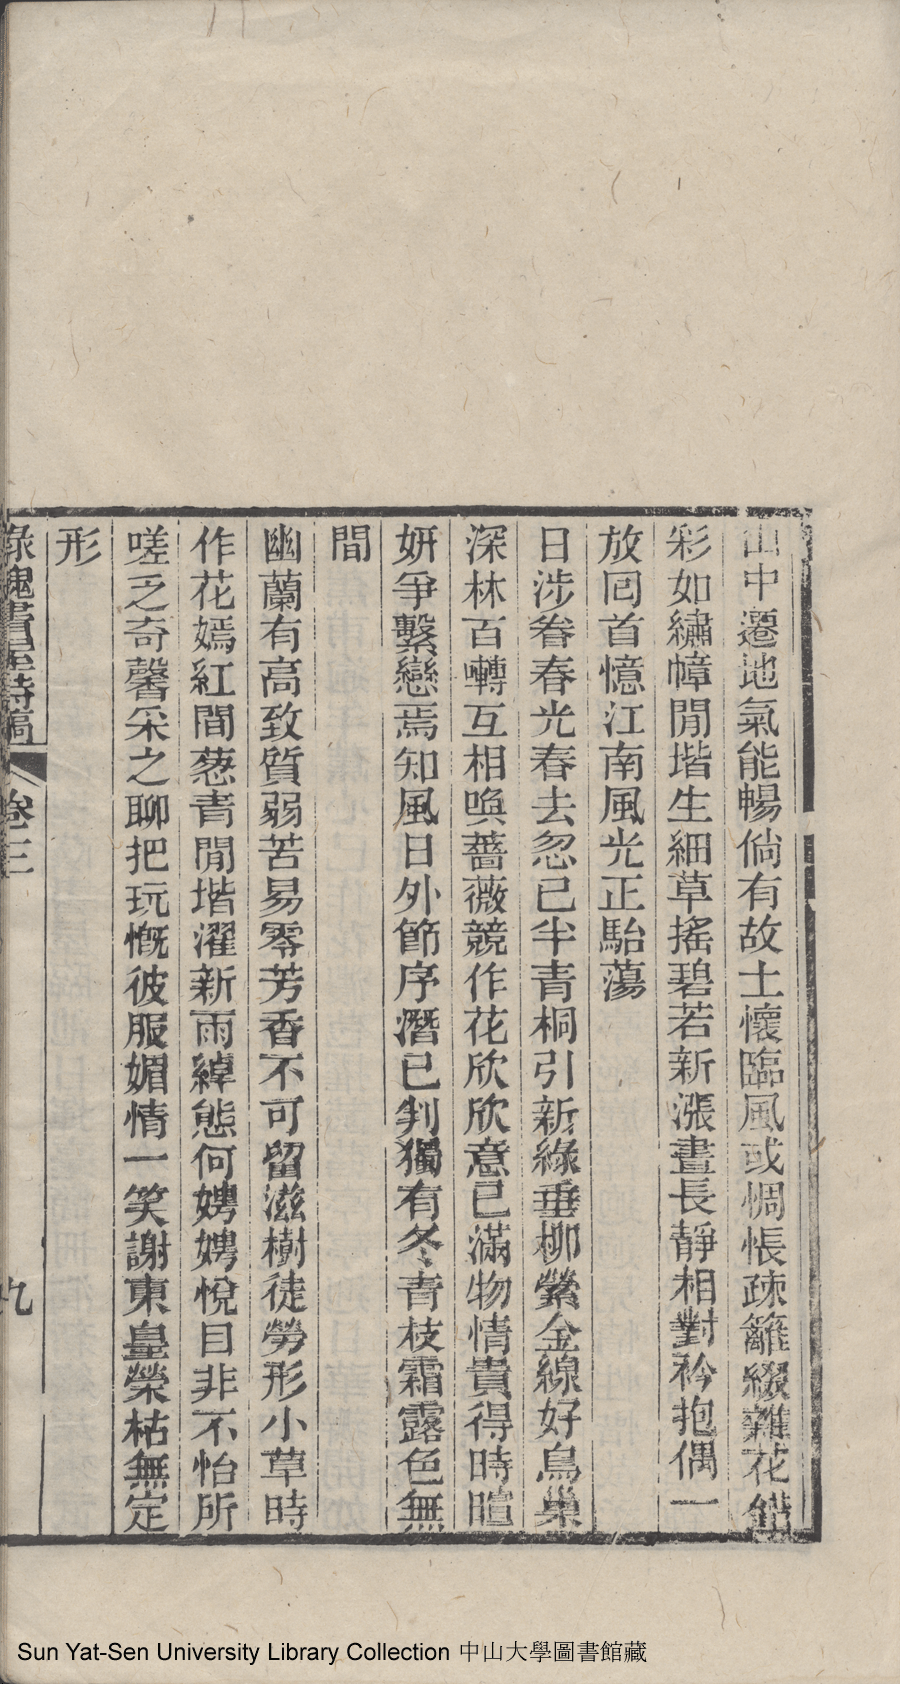 山中遷地氣能暢倘有故土懷臨風或惆悵疎籬綴雜花錯
彩如繡幛閒堦生細草搖碧若新漲晝長靜相對衿抱偶一
放回首憶江南風光正駘蕩
日涉眷春光春去忽已半青桐引新綠垂柳縈金線好鳥巢
深林百囀互相喚薔薇競作花欣欣意已滿物情貴得時暄
妍爭繫戀焉知風日外節序潛已判獨有冬青枝霜露色無
間
幽蘭有高致質弱苦易零芳香不可留滋樹徒勞形小草時
作花嫣紅間葱青閒堦濯新雨綽態何娉娉悅目非不怡所
嗟乏奇馨采之聊把玩慨彼服媚情一笑謝東皇榮枯無定
形
綠槐書屋詩稿 卷三 九
Sun Yat-Sen University Library Collection 中山大學圖書館藏